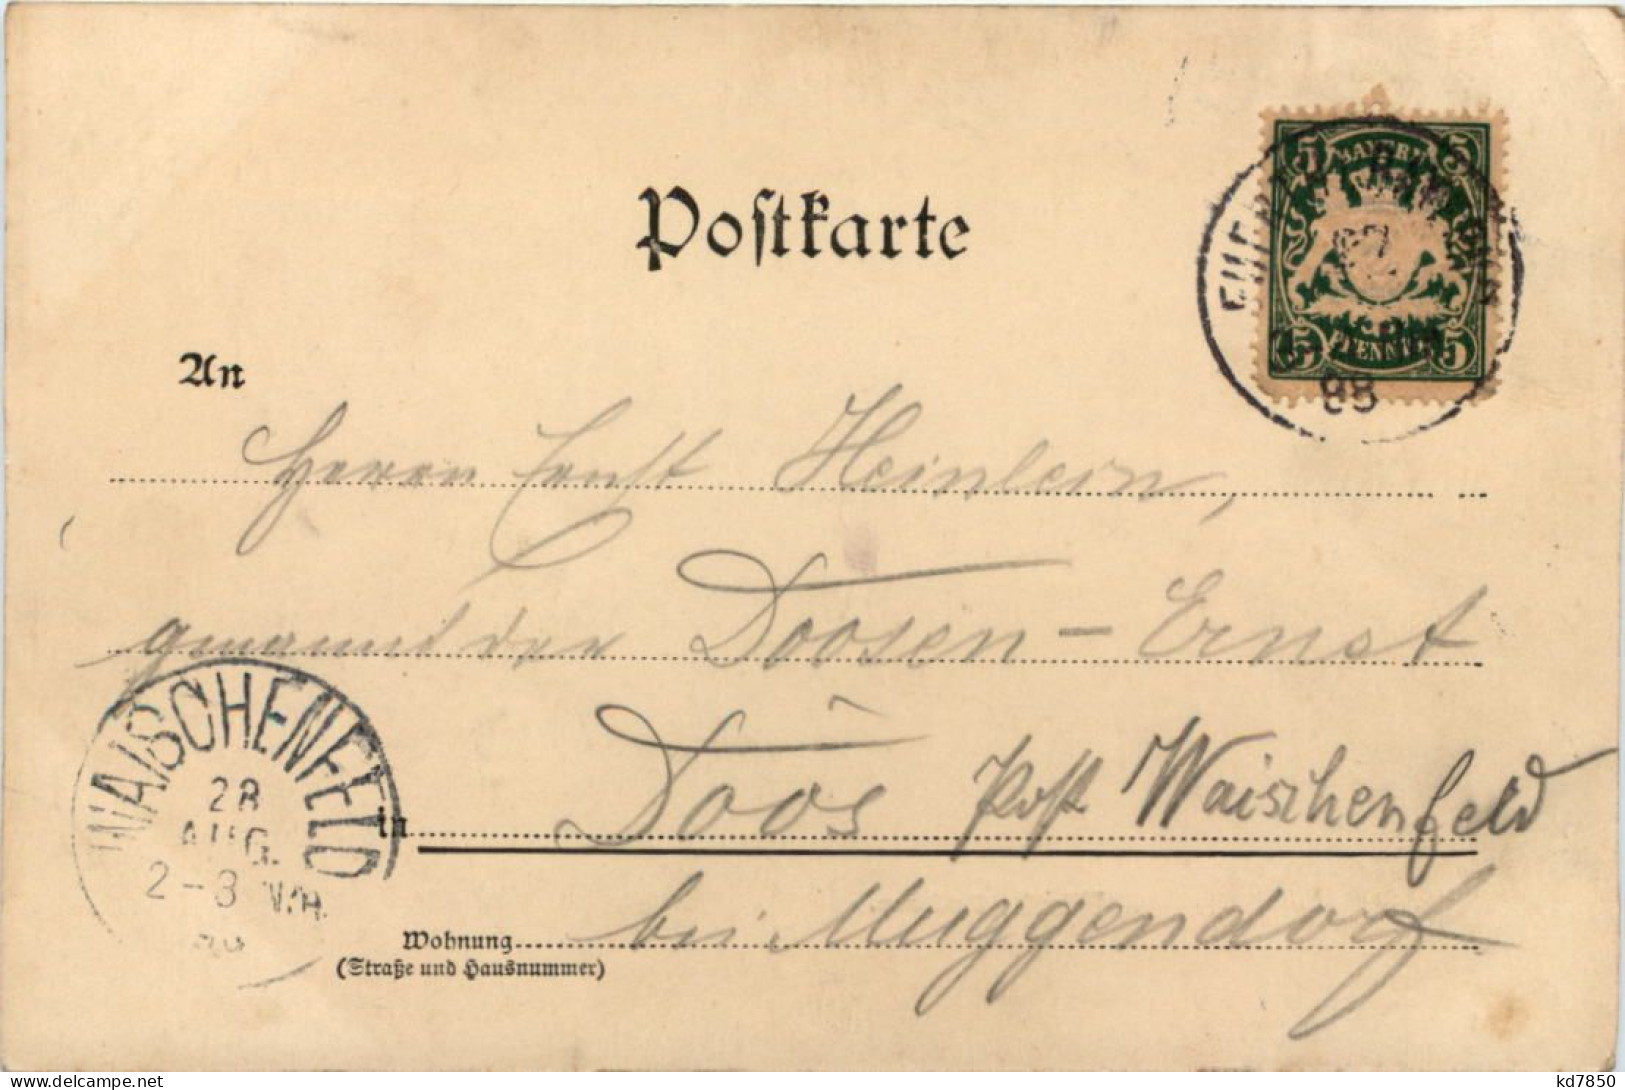 Postkarte
BAYERN
5 5
PFENNIG
5 5
98
An
Herrn Ernst Heinlein,
genannt der Doosen-Ernst
WAISCHENFELD
28
AUG.
2-3 N.M.
in Doos Post Waischenfeld
bei Muggendorf
Wohnung
(Straße und Hausnummer)
kd7850